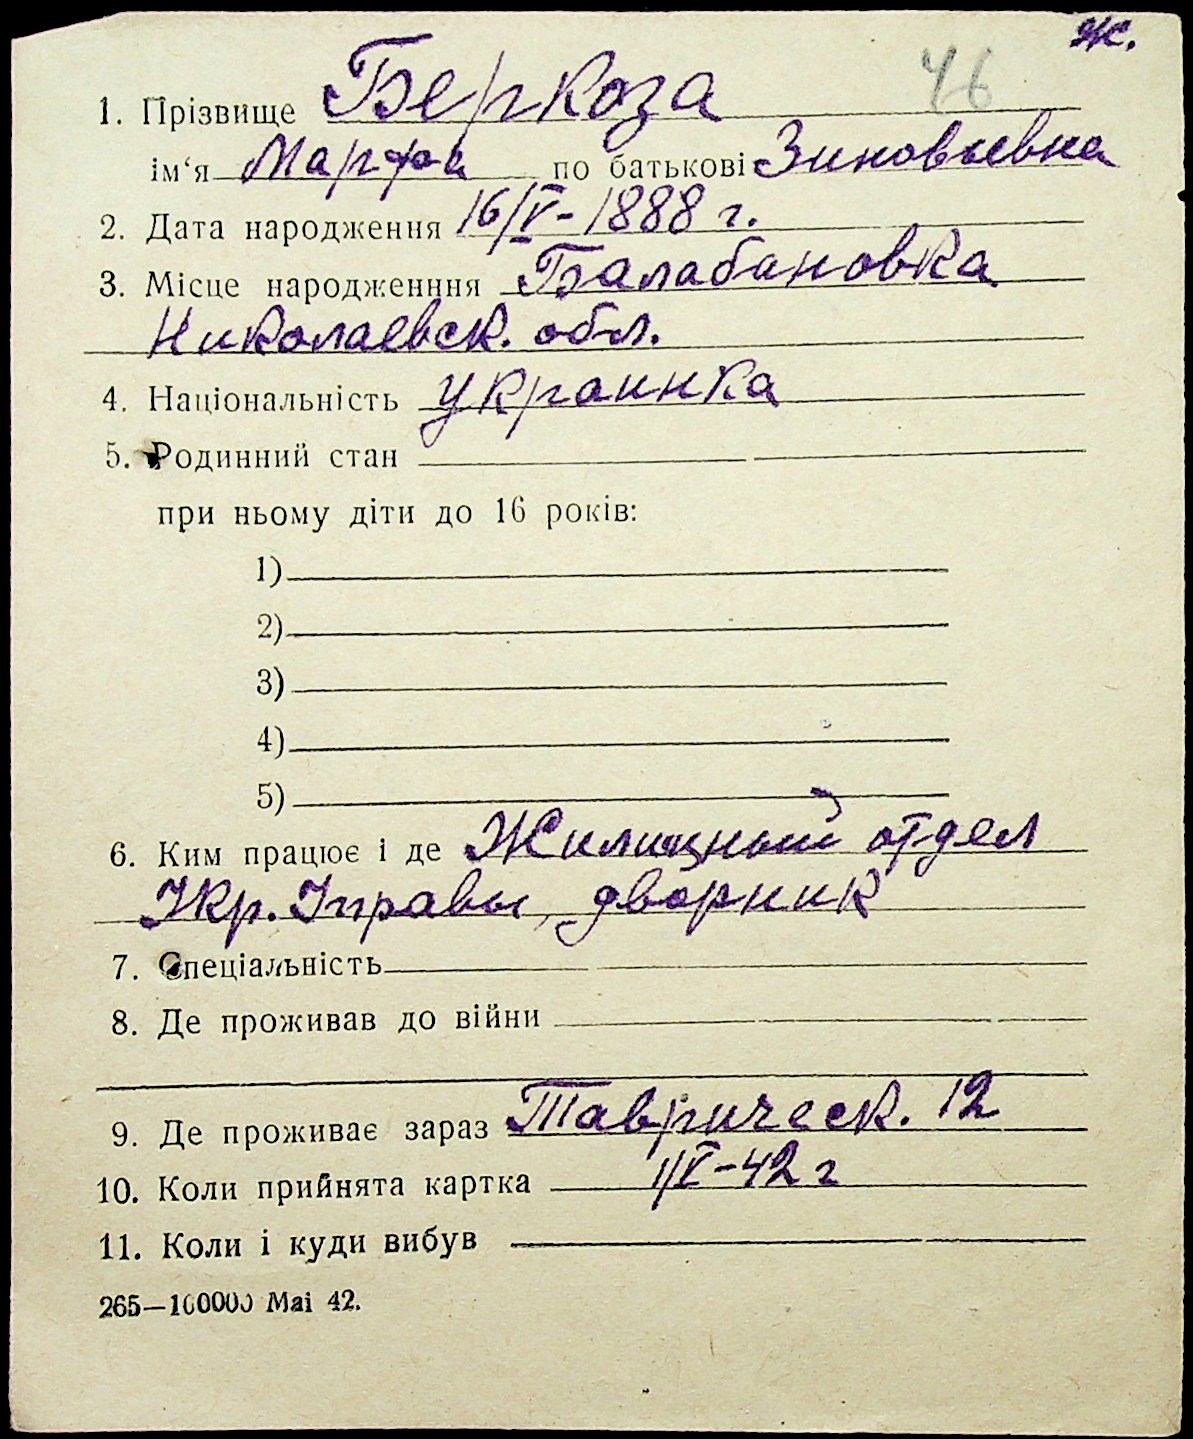 ж.
46
1. Прізвище Беркоза
ім‘я Марфа по батькові Зиновьевна
2. Дата народження 16/V-1888 г.
3. Місце народженння Балабановка
Николаевск. обл.
4. Національність украинка
5. Родинний стан
при ньому діти до 16 років:
1)
2)
3)
4)
5)
6. Ким працює і де Жилищный отдел
Укр. Управы, дворник
7. Спеціальність
8. Де проживав до війни
9. Де проживає зараз Таврическ. 12
10. Коли прийнята картка 1/V-42 г
11. Коли і куди вибув
265—100000 Маі 42.